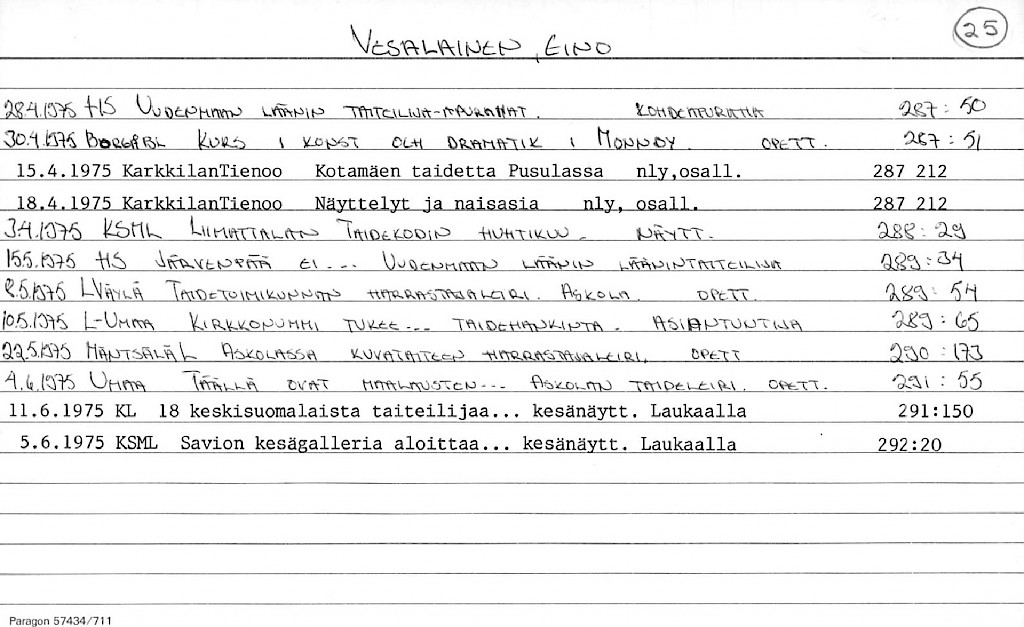 25
VESALAINEN, EINO
28.4.1975 HS UUDENMAAN LÄÄNIN TAITEILIJA-APURAHAT. KOHDEAPURAHA 287:50
30.4.1975 BORGÅBL KURS I KONST OCH DRAMATIK I MONNBY. OPETT. 287:51
15.4.1975 KarkkilanTienoo Kotamäen taidetta Pusulassa nly,osall. 287 212
18.4.1975 KarkkilanTienoo Näyttelyt ja naisasia nly, osall. 287 212
3.4.1975 KSML LIIMATTALAN TAIDEKODIN HUHTIKUU - NÄYTT. 288:29
15.5.1975 HS JÄRVENPÄÄ EI... UUDENMAAN LÄÄNIN LÄÄNINTAITEILIJA 289:34
8.5.1975 LVÄYLÄ TAIDETOIMIKUNNAN HARRASTAJALEIRI. ASKOLA. OPETT. 289:54
10.5.1975 L-UMAA KIRKKONUMMI TUKEE... TAIDEHANKINTA. ASIANTUNTIJA 289:65
22.5.1975 MÄNTSÄLÄL ASKOLASSA KUVATAITEEN HARRASTAJALEIRI. OPETT 290:173
4.6.1975 UMAA TÄÄLLÄ OVAT MAALAUSTEN... ASKOLAN TAIDELEIRI. OPETT. 291:55
11.6.1975 KL 18 keskisuomalaista taiteilijaa... kesänäytt. Laukaalla 291:150
5.6.1975 KSML Savion kesägalleria aloittaa... kesänäytt. Laukaalla 292:20
Paragon 57434/711